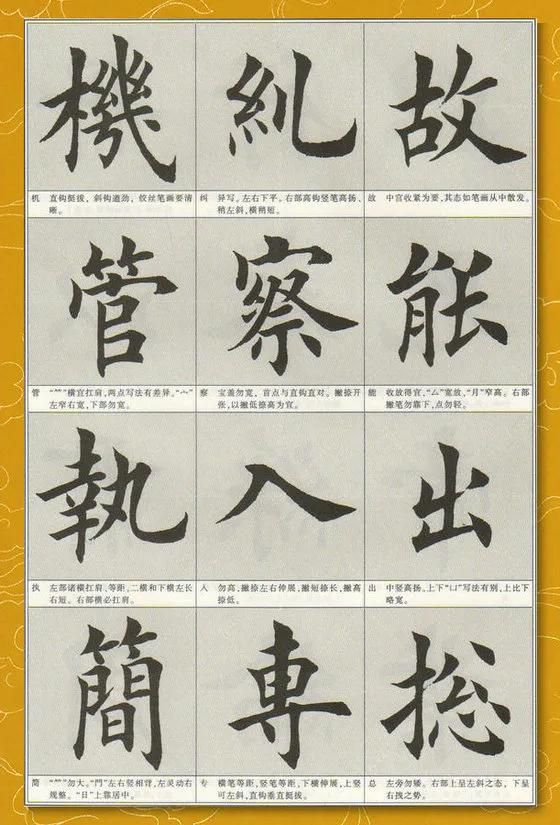 故
故 中宫收紧为要,其态如笔画从中散发。
能
能 收放得宜,“厶”宽放,“月”窄高。右部
撇笔勿靠下,点勿轻。
出
出 中竖高扬。上下“凵”写法有别,上比下
略宽。
捴
总 左旁勿矮。右部上呈左斜之态,下呈
右拽之势。
糺
纠 异写。左右下平。右部高钩竖笔高扬、
稍左斜,横稍短。
察
察 宝盖勿宽,首点与直钩直对。撇捺开
张,以撇低捺高为宜。
入
入 勿高,撇捺左右伸展,撇短捺长,撇高
捺低。
専
专 横笔等距,竖笔等距,下横伸展,上竖
可左斜,直钩垂直挺拔。
機
机 直钩挺拔,斜钩遒劲,绞丝笔画要清
晰。
管
管 “⺮”横宜扛肩,两点写法有差异。“宀”
左窄右宽,下部勿宽。
執
执 左部诸横扛肩、等距,二横和下横左长
右短。右部横必扛肩。
簡
简 “⺮”勿大。“門”左右竖相背,左灵动右
规整。“日”上靠居中。